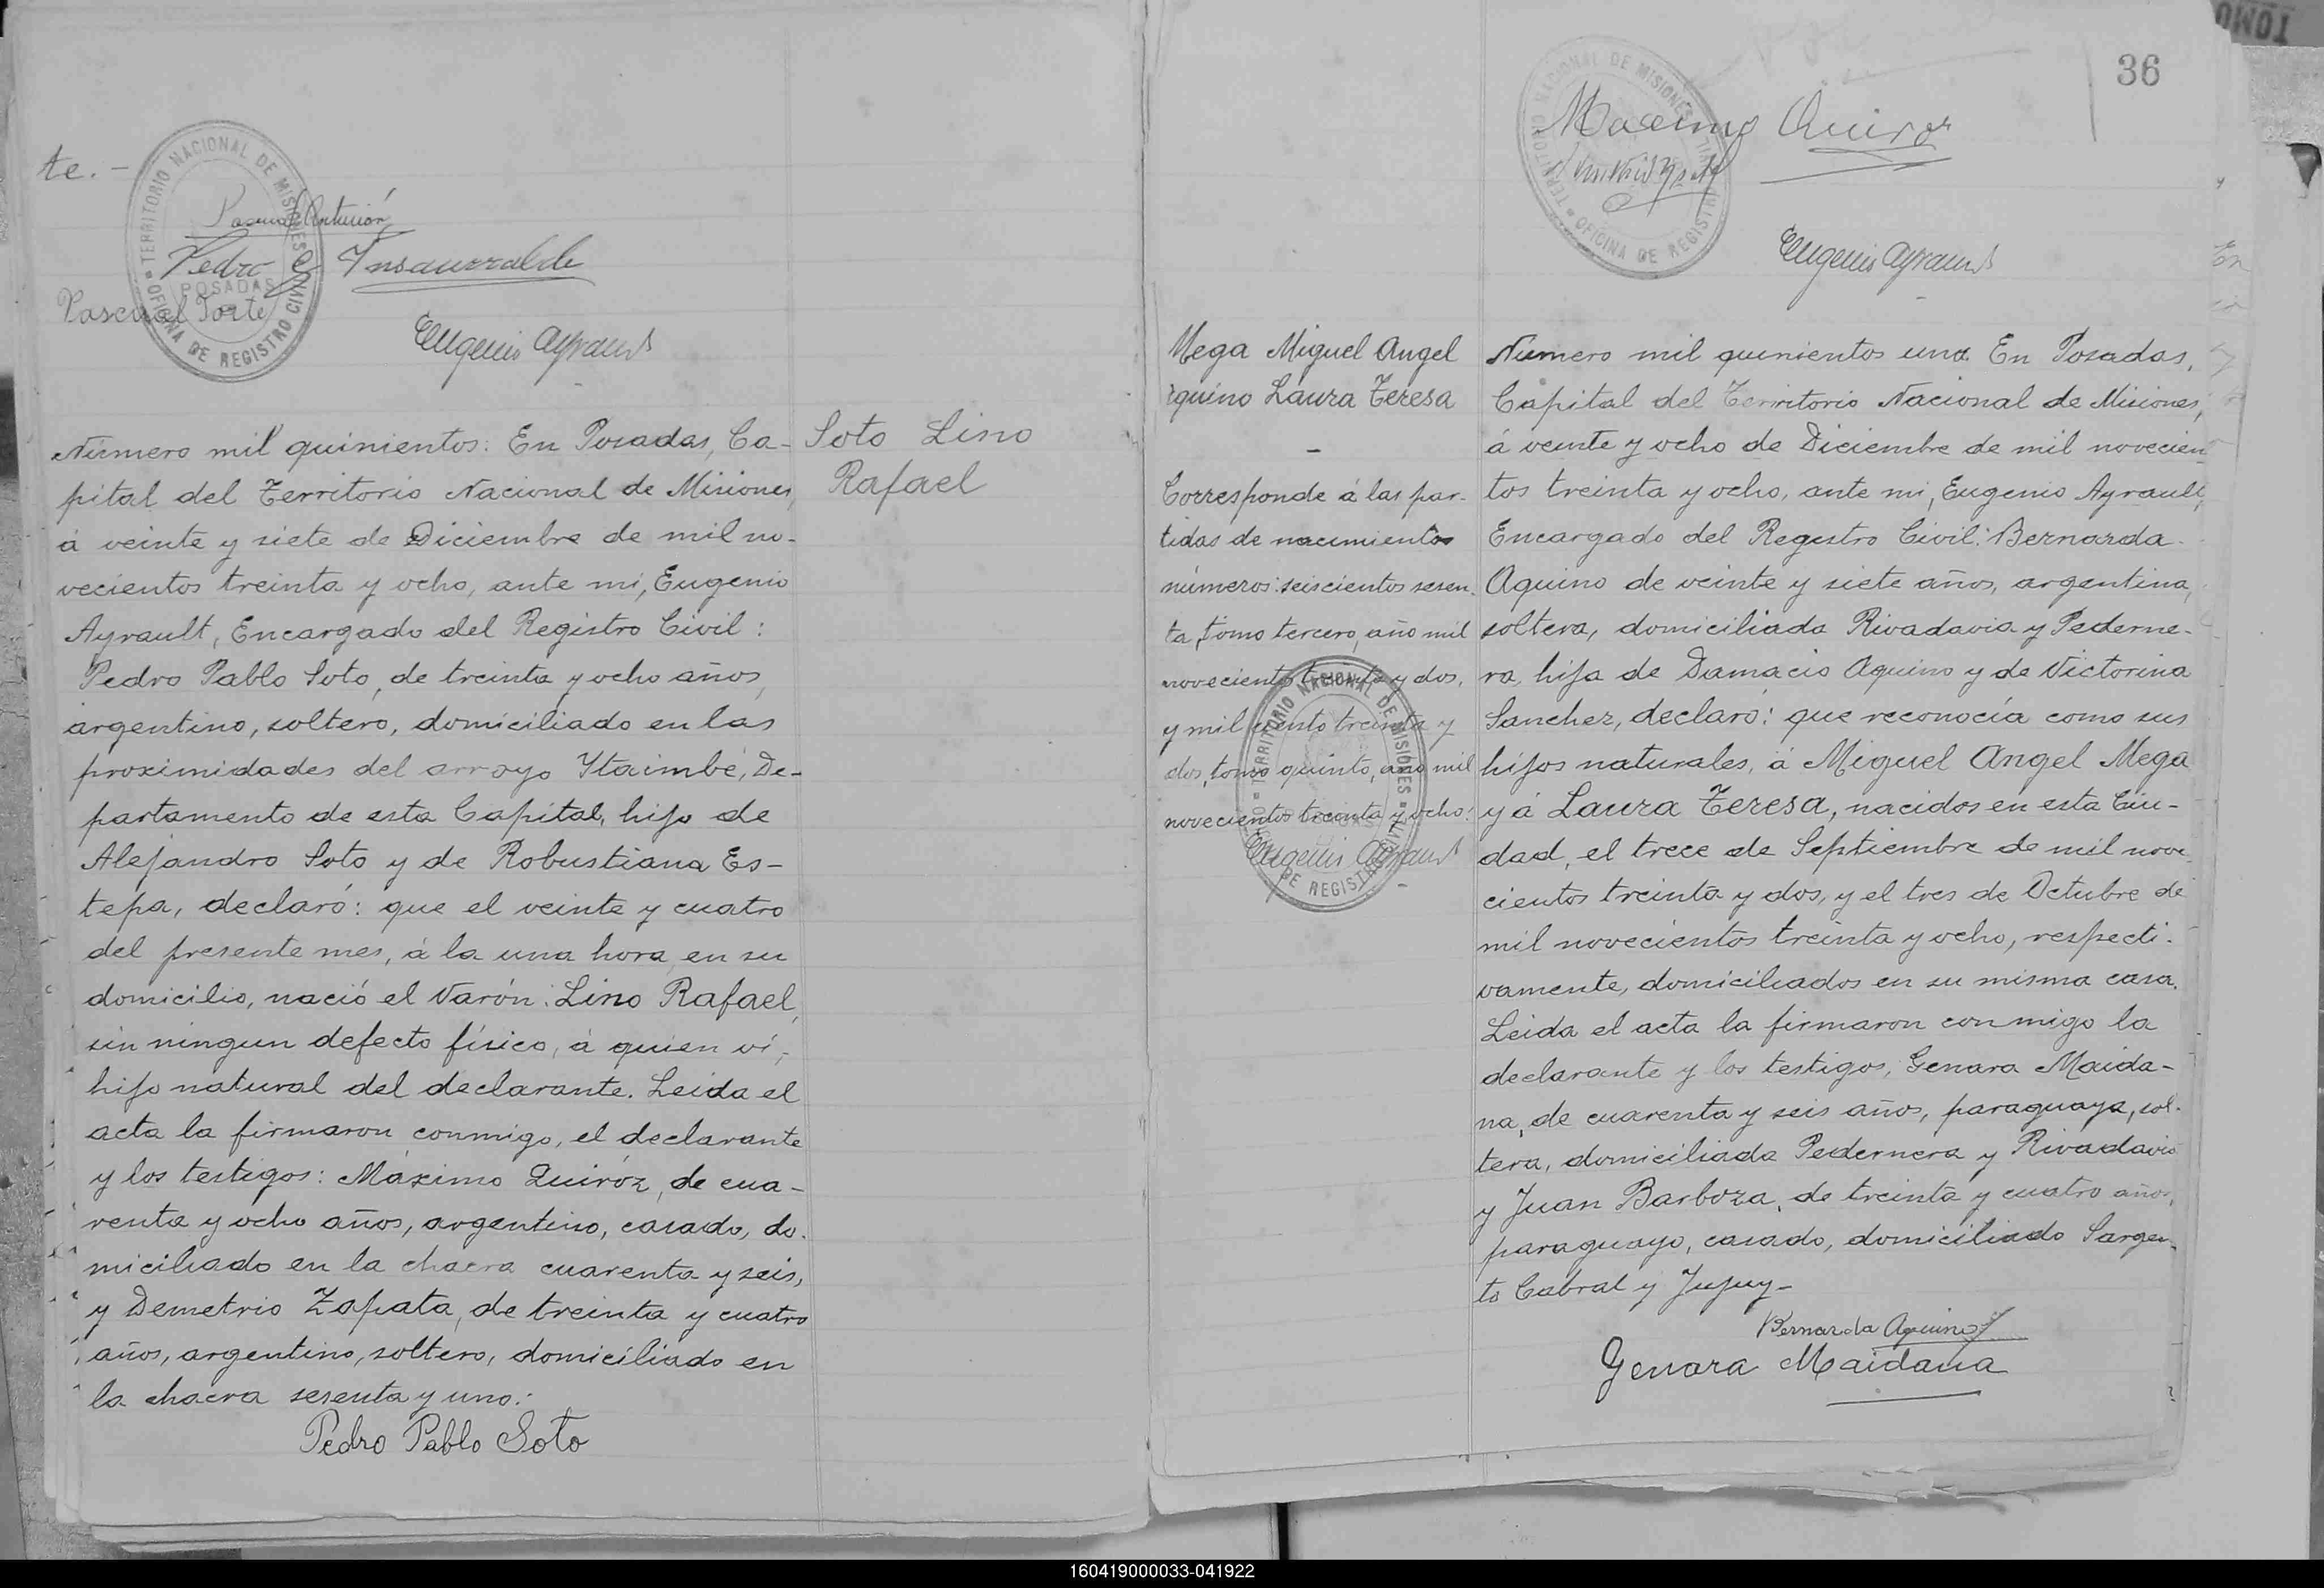 te.-
TERRITORIO NACIONAL DE MISIONES
OFICINA DE REGISTRO CIVIL
POSADAS
Pascual Anturión
Pedro Insaurralde
Pascual Torte
Eugenio Ayrault
Número mil quinientos: En Posadas, Ca-
pital del Territorio Nacional de Misiones,
á veinte y siete de Diciembre de mil no-
vecientos treinta y ocho, ante mi, Eugenio
Ayrault, Encargado del Registro Civil:
Pedro Pablo Soto, de treinta y ocho años,
argentino, soltero, domiciliado en las
proximidades del arroyo Ytaimbé, De-
partamento de esta Capital, hijo de
Alejandro Soto y de Robustiana Es-
tepa, declaró: que el veinte y cuatro
del presente mes, á la una hora, en su
domicilio, nació el varón: Lino Rafael,
sin ningun defecto físico, á quien ví,
hijo natural del declarante. Leida el
acta la firmaron conmigo, el declarante
y los testigos: Máximo Quiróz, de cua-
renta y ocho años, argentino, casado, do-
miciliado en la chacra cuarenta y seis,
y Demetrio Zapata, de treinta y cuatro
años, argentino, soltero, domiciliado en
la chacra sesenta y uno:
Pedro Pablo Soto
Soto Lino
Rafael
TOMO
36
TERRITORIO NACIONAL DE MISIONES
OFICINA DE REGISTRO CIVIL
Maximo Quiros
Eugenio Ayrault
Mega Miguel Angel
quino Laura Teresa
-
Corresponde á las par-
tidas de nacimientos
números: seiscientos sesen-
ta, tomo tercero, año mil
novecientos treinta y dos,
y mil ciento treinta y
dos, tomo quinto, año mil
novecientos treinta y ocho:
Eugenio Ayrault
TERRITORIO NACIONAL DE MISIONES
OFICINA DE REGISTRO CIVIL
Número mil quinientos uno. En Posadas,
Capital del Territorio Nacional de Misiones,
á veinte y ocho de Diciembre de mil novecien-
tos treinta y ocho, ante mi, Eugenio Ayrault,
Encargado del Registro Civil: Bernarda
Aquino de veinte y siete años, argentina,
soltera, domiciliada Rivadavia y Pederne-
ra, hija de Damacio Aquino y de Victorina
Sanchez, declaró: que reconocía como sus
hijos naturales, á Miguel Angel Mega
y á Laura Teresa, nacidos en esta Ciu-
dad, el trece de Septiembre de mil nove-
cientos treinta y dos, y el tres de Octubre de
mil novecientos treinta y ocho, respecti-
vamente, domiciliados en su misma casa.
Leida el acta la firmaron conmigo la
declarante y los testigos, Genara Maida-
na, de cuarenta y seis años, paraguaya, sol-
tera, domiciliada Pedernera y Rivadavia
y Juan Barboza, de treinta y cuatro años,
paraguayo, casado, domiciliado Sargen-
to Cabral y Jujuy-
Bernarda Aquino
Genara Maidana
160419000033-041922